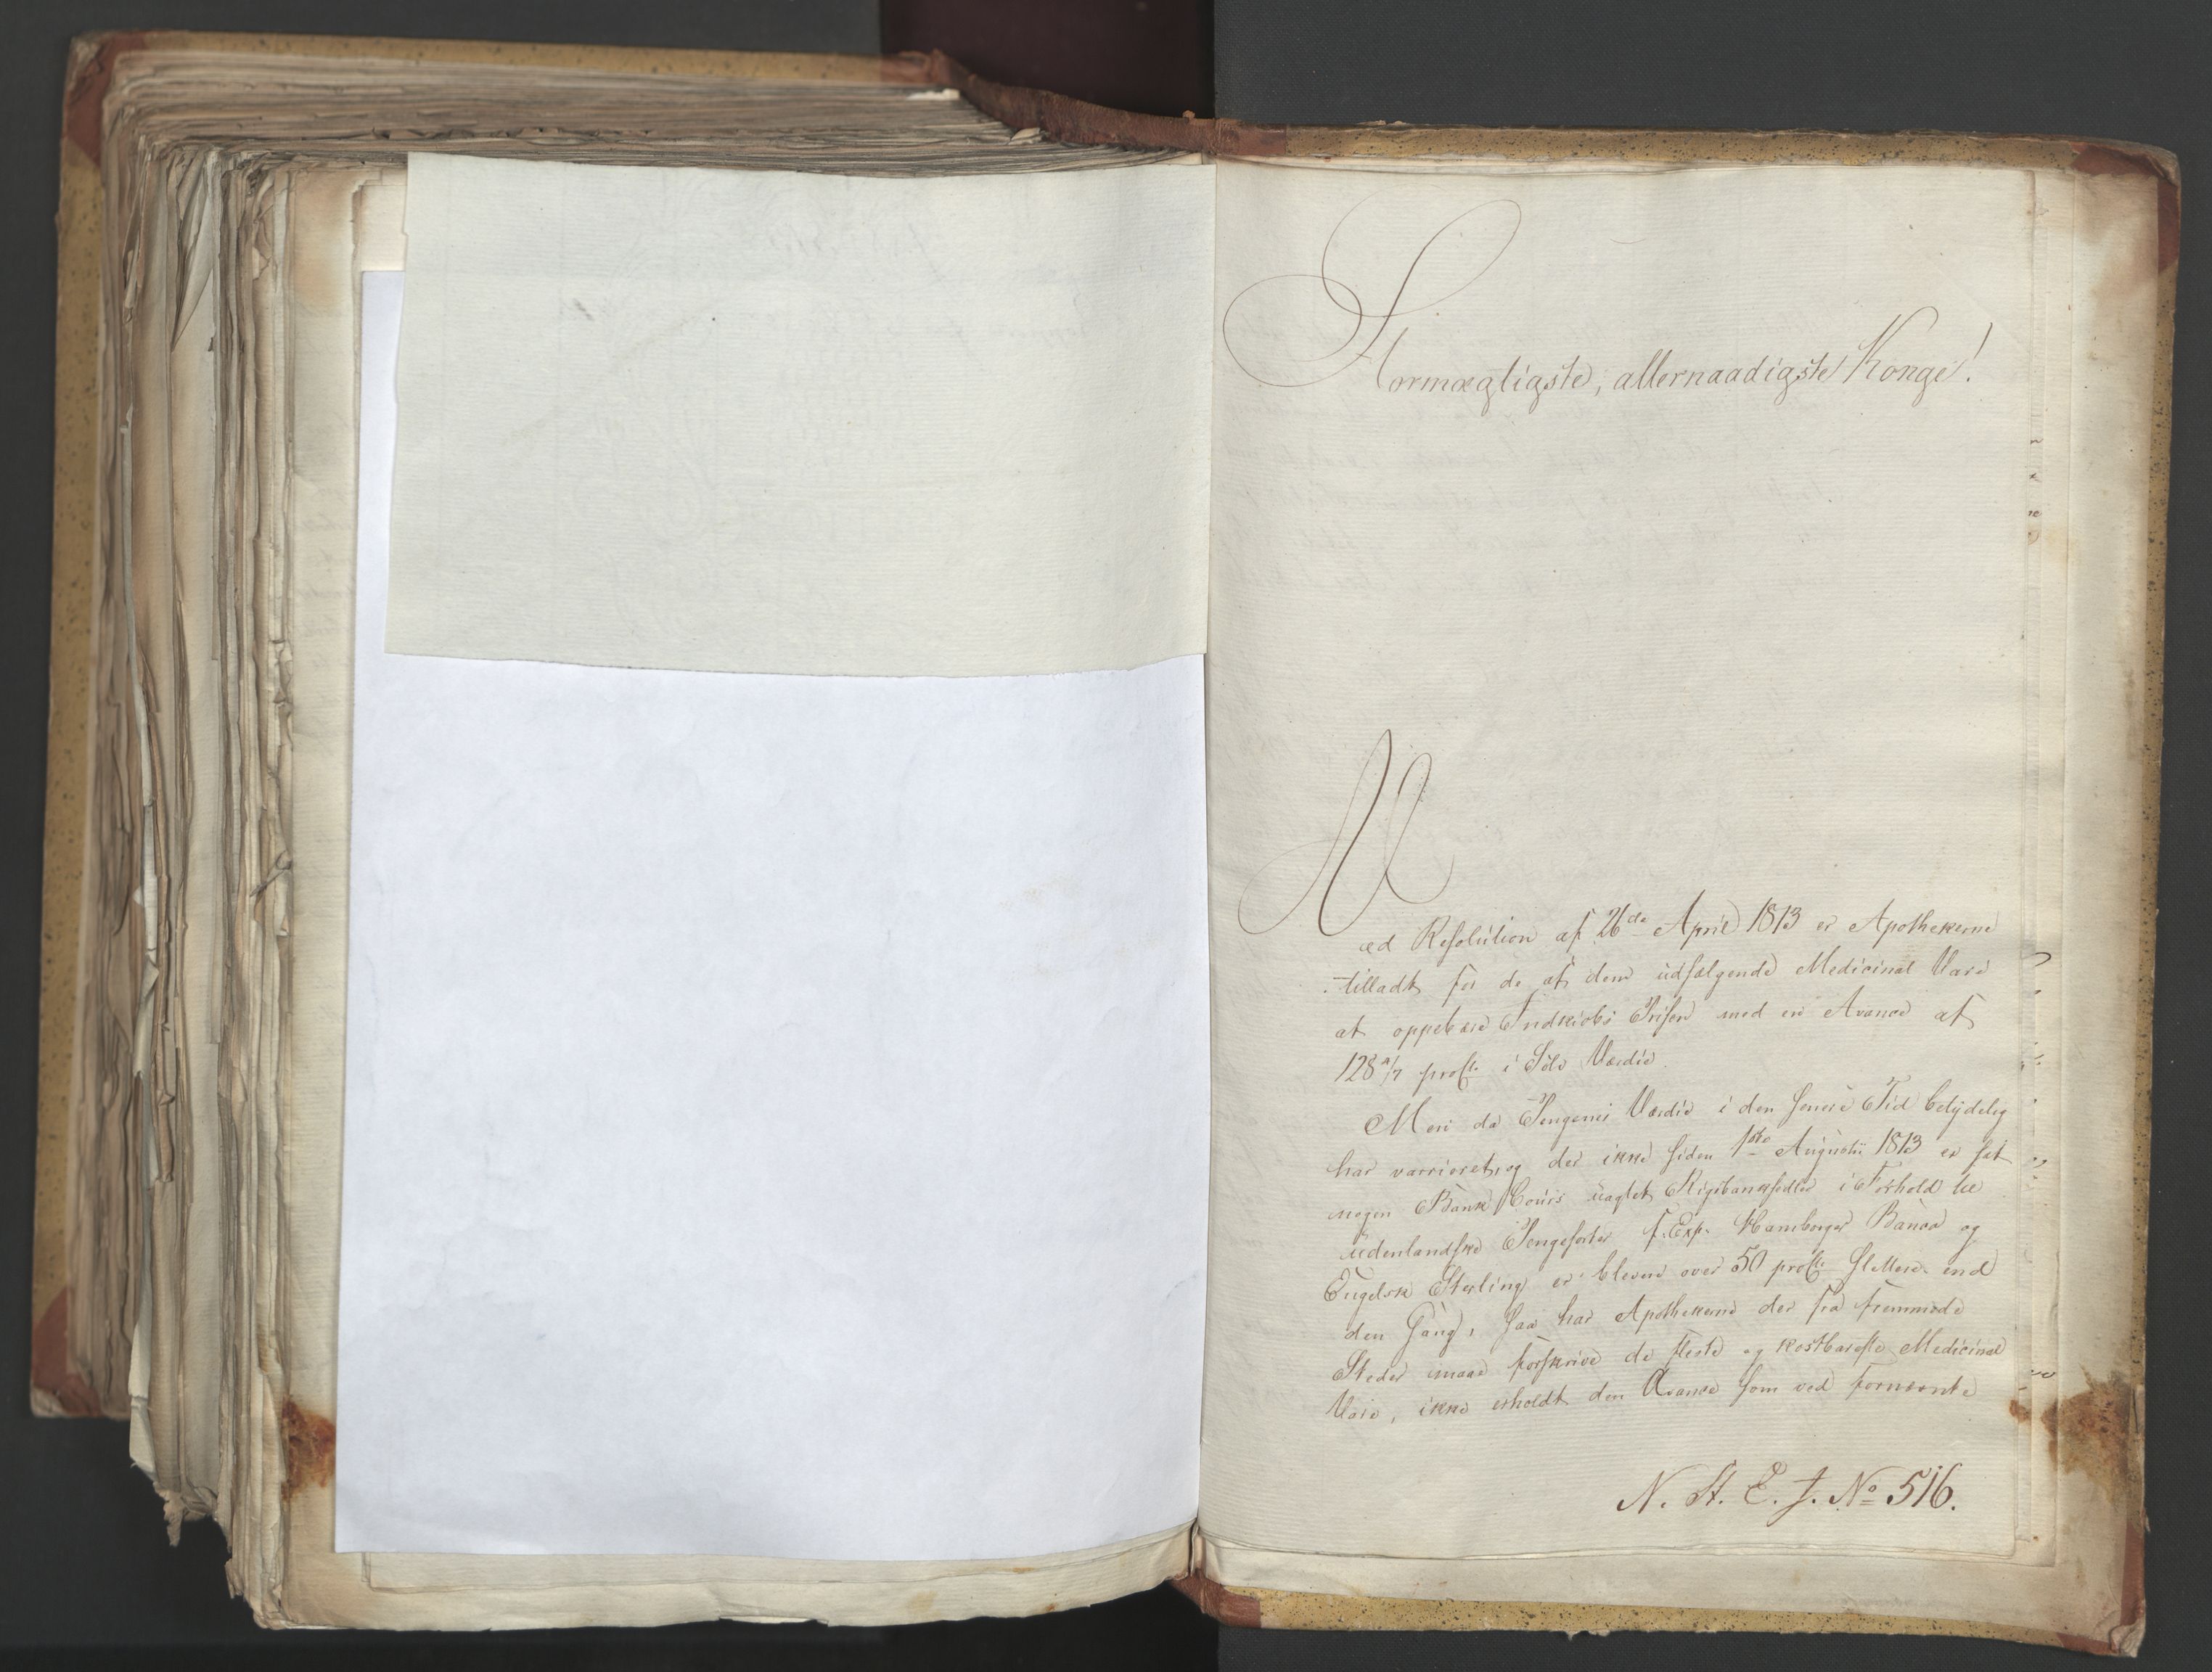 Stormægtigste, allernaadigste Konge!
Ved Resolution af 26de April 1813 er Apothekerne
tilladt for de af dem udsælgende Medicinal Vare
at oppebære Indkiøbs Prisen med en Avance af
128 4/7 proCt. i Sølv Værdie.
Men da Pengenes Værdie i den senere Tid betydelig
har varrieret, og der ikke siden 1ste Augustii 1813 er sat
nogen Bank Cours uagtet Rigsbanksedler i Forhold til
udenlandske Pengesorter f. Exp. Hamborger Banco og
Engelsk Sterling er bleven over 50 proCt. slettere end
den Gang, saa har Apothekerne der fra fremmede
Steder maae forskrive de fleste og kostbareste Medicinal
Vare, ikke erholdt den Avance som ved fornævnte
N. St. E. J. No 516.